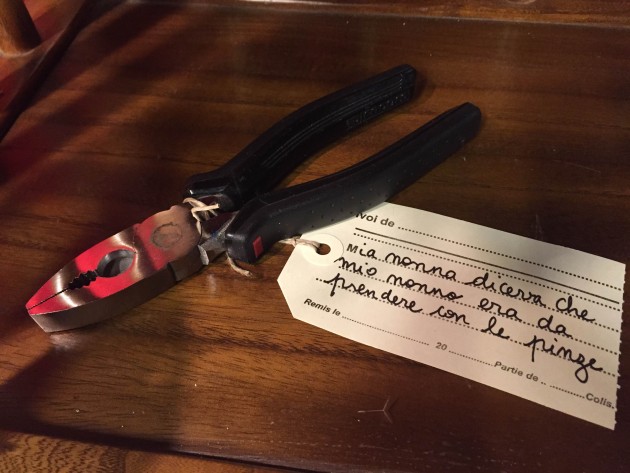 voi de
Mia nonna diceva che
mio nonno era da
prendere con le pinze
Remis le 20 Partie de Colis.